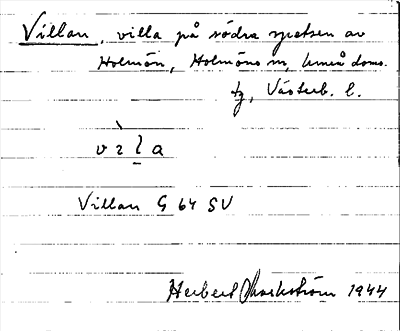 Villan, villa på södra spetsen av
Holmön, Holmöns sn, Umeå doms.
tg, Västerb. l.
Villan G 64 SV
Herbert Markström 1944